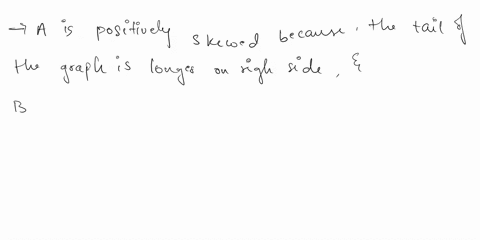 → A is positively skewed because, the tail of
the graph is longer on righ side, &
B